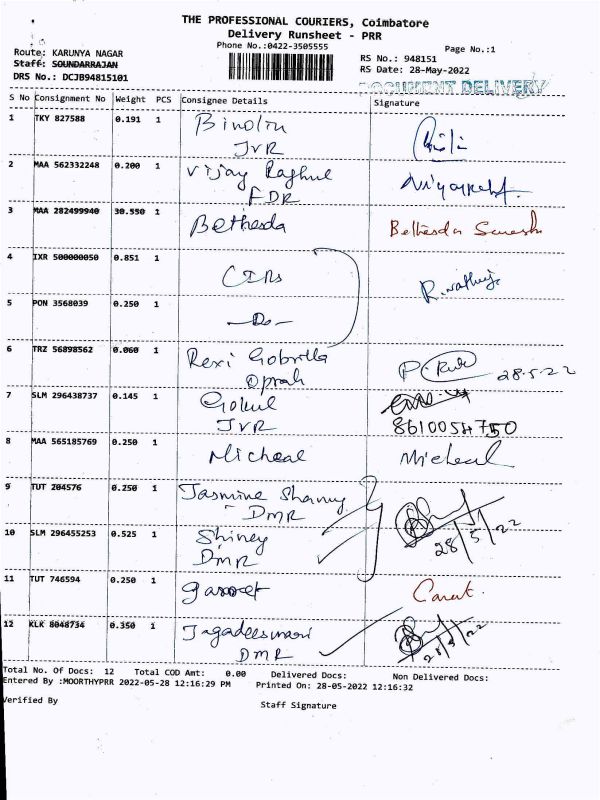 THE PROFESSIONAL COURIERS, Coimbatore
Delivery Runsheet - PRR
Phone No.:0422-3505555
Page No.:1
Route: KARUNYA NAGAR
RS No.: 948151
Staff: SOUNDARRAJAN
RS Date: 28-May-2022
DRS No.: DCJB94815101
DOCUMENT DELIVERY
S No Consignment No Weight PCS Consignee Details Signature
1 TKY 827588 0.191 1 Binolin
JVR
2 MAA 562332248 0.200 1 Vijay Raghul
FDR
3 MAA 282499940 30.550 1 Bethesda Bethesda
4 IXR 500000050 0.851 1
5 PON 3568039 0.250 1 -Do-
6 TRZ 56898562 0.060 1 Rexi Gobrilla
Oprah 28.5.22
7 SLM 296438737 0.145 1 Gokul
JVR 8610054750
8 MAA 565185769 0.250 1 Micheal Micheal
9 TUT 204576 0.250 1 Jasmine Shanny
DMR
28/5/22
10 SLM 296455253 0.525 1 Shiney
DMR
11 TUT 746594 0.250 1
12 KLK 8048734 0.350 1 Jagadeeswari
DMR 28/5/22
Total No. Of Docs: 12 Total COD Amt: 0.00 Delivered Docs: Non Delivered Docs:
Entered By :MOORTHYPRR 2022-05-28 12:16:29 PM Printed On: 28-05-2022 12:16:32
Verified By
Staff Signature